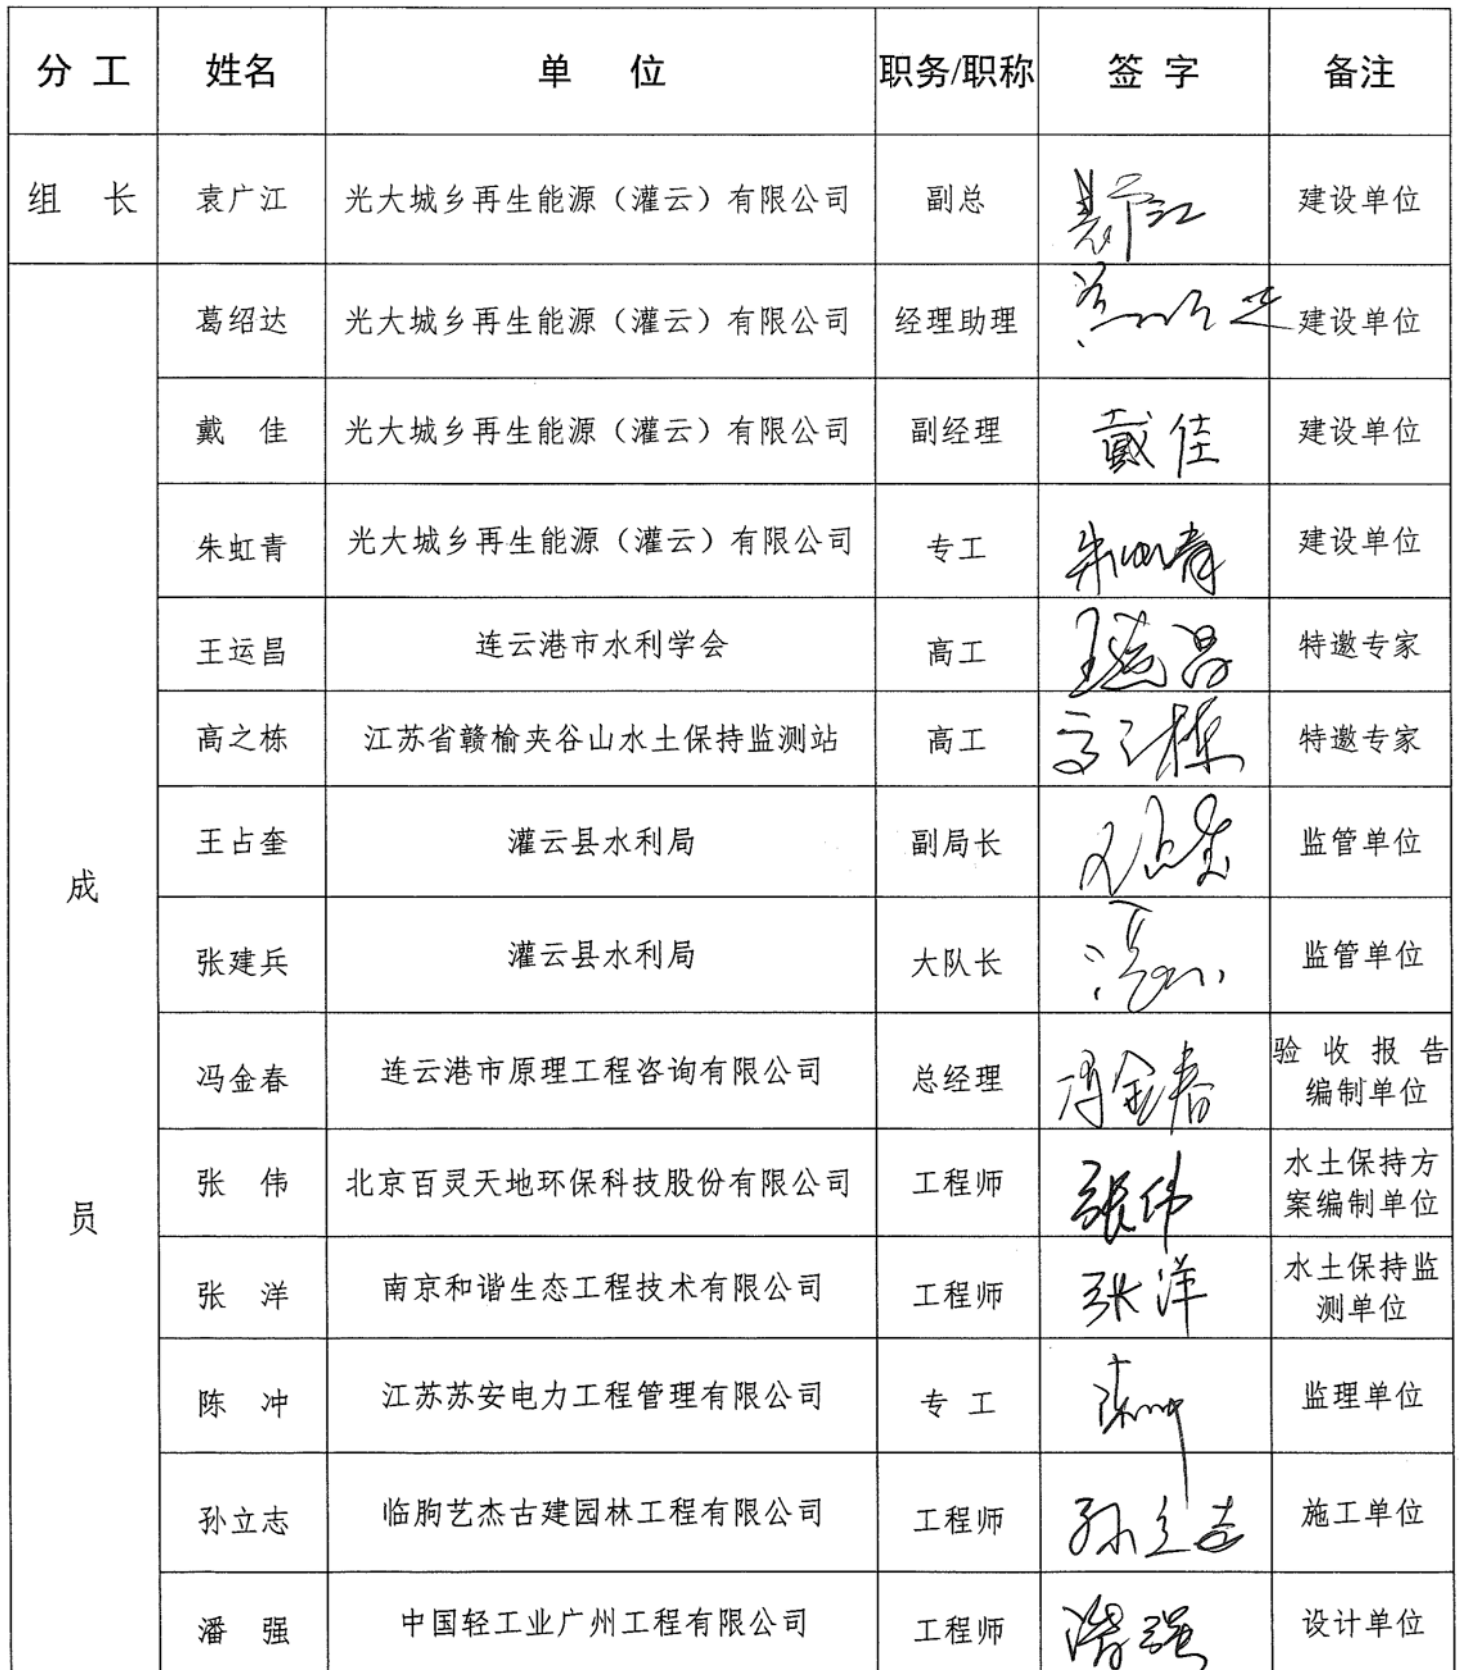 分 工 姓名 单 位 职务/职称 签 字 备注
组 长 袁广江 光大城乡再生能源（灌云）有限公司 副总 袁广江 建设单位
葛绍达 光大城乡再生能源（灌云）有限公司 经理助理 建设单位
戴 佳 光大城乡再生能源（灌云）有限公司 副经理 戴佳 建设单位
朱虹青 光大城乡再生能源（灌云）有限公司 专工 朱虹青 建设单位
王运昌 连云港市水利学会 高工 王运昌 特邀专家
高之栋 江苏省赣榆夹谷山水土保持监测站 高工 高之栋 特邀专家
王占奎 灌云县水利局 副局长 王占奎 监管单位
成
张建兵 灌云县水利局 大队长 监管单位
冯金春 连云港市原理工程咨询有限公司 总经理 冯金春 验收报告
编制单位
张 伟 北京百灵天地环保科技股份有限公司 工程师 张伟 水土保持方
案编制单位
员
张 洋 南京和谐生态工程技术有限公司 工程师 张洋 水土保持监
测单位
陈 冲 江苏苏安电力工程管理有限公司 专 工 陈冲 监理单位
孙立志 临朐艺杰古建园林工程有限公司 工程师 孙立志 施工单位
潘 强 中国轻工业广州工程有限公司 工程师 潘强 设计单位